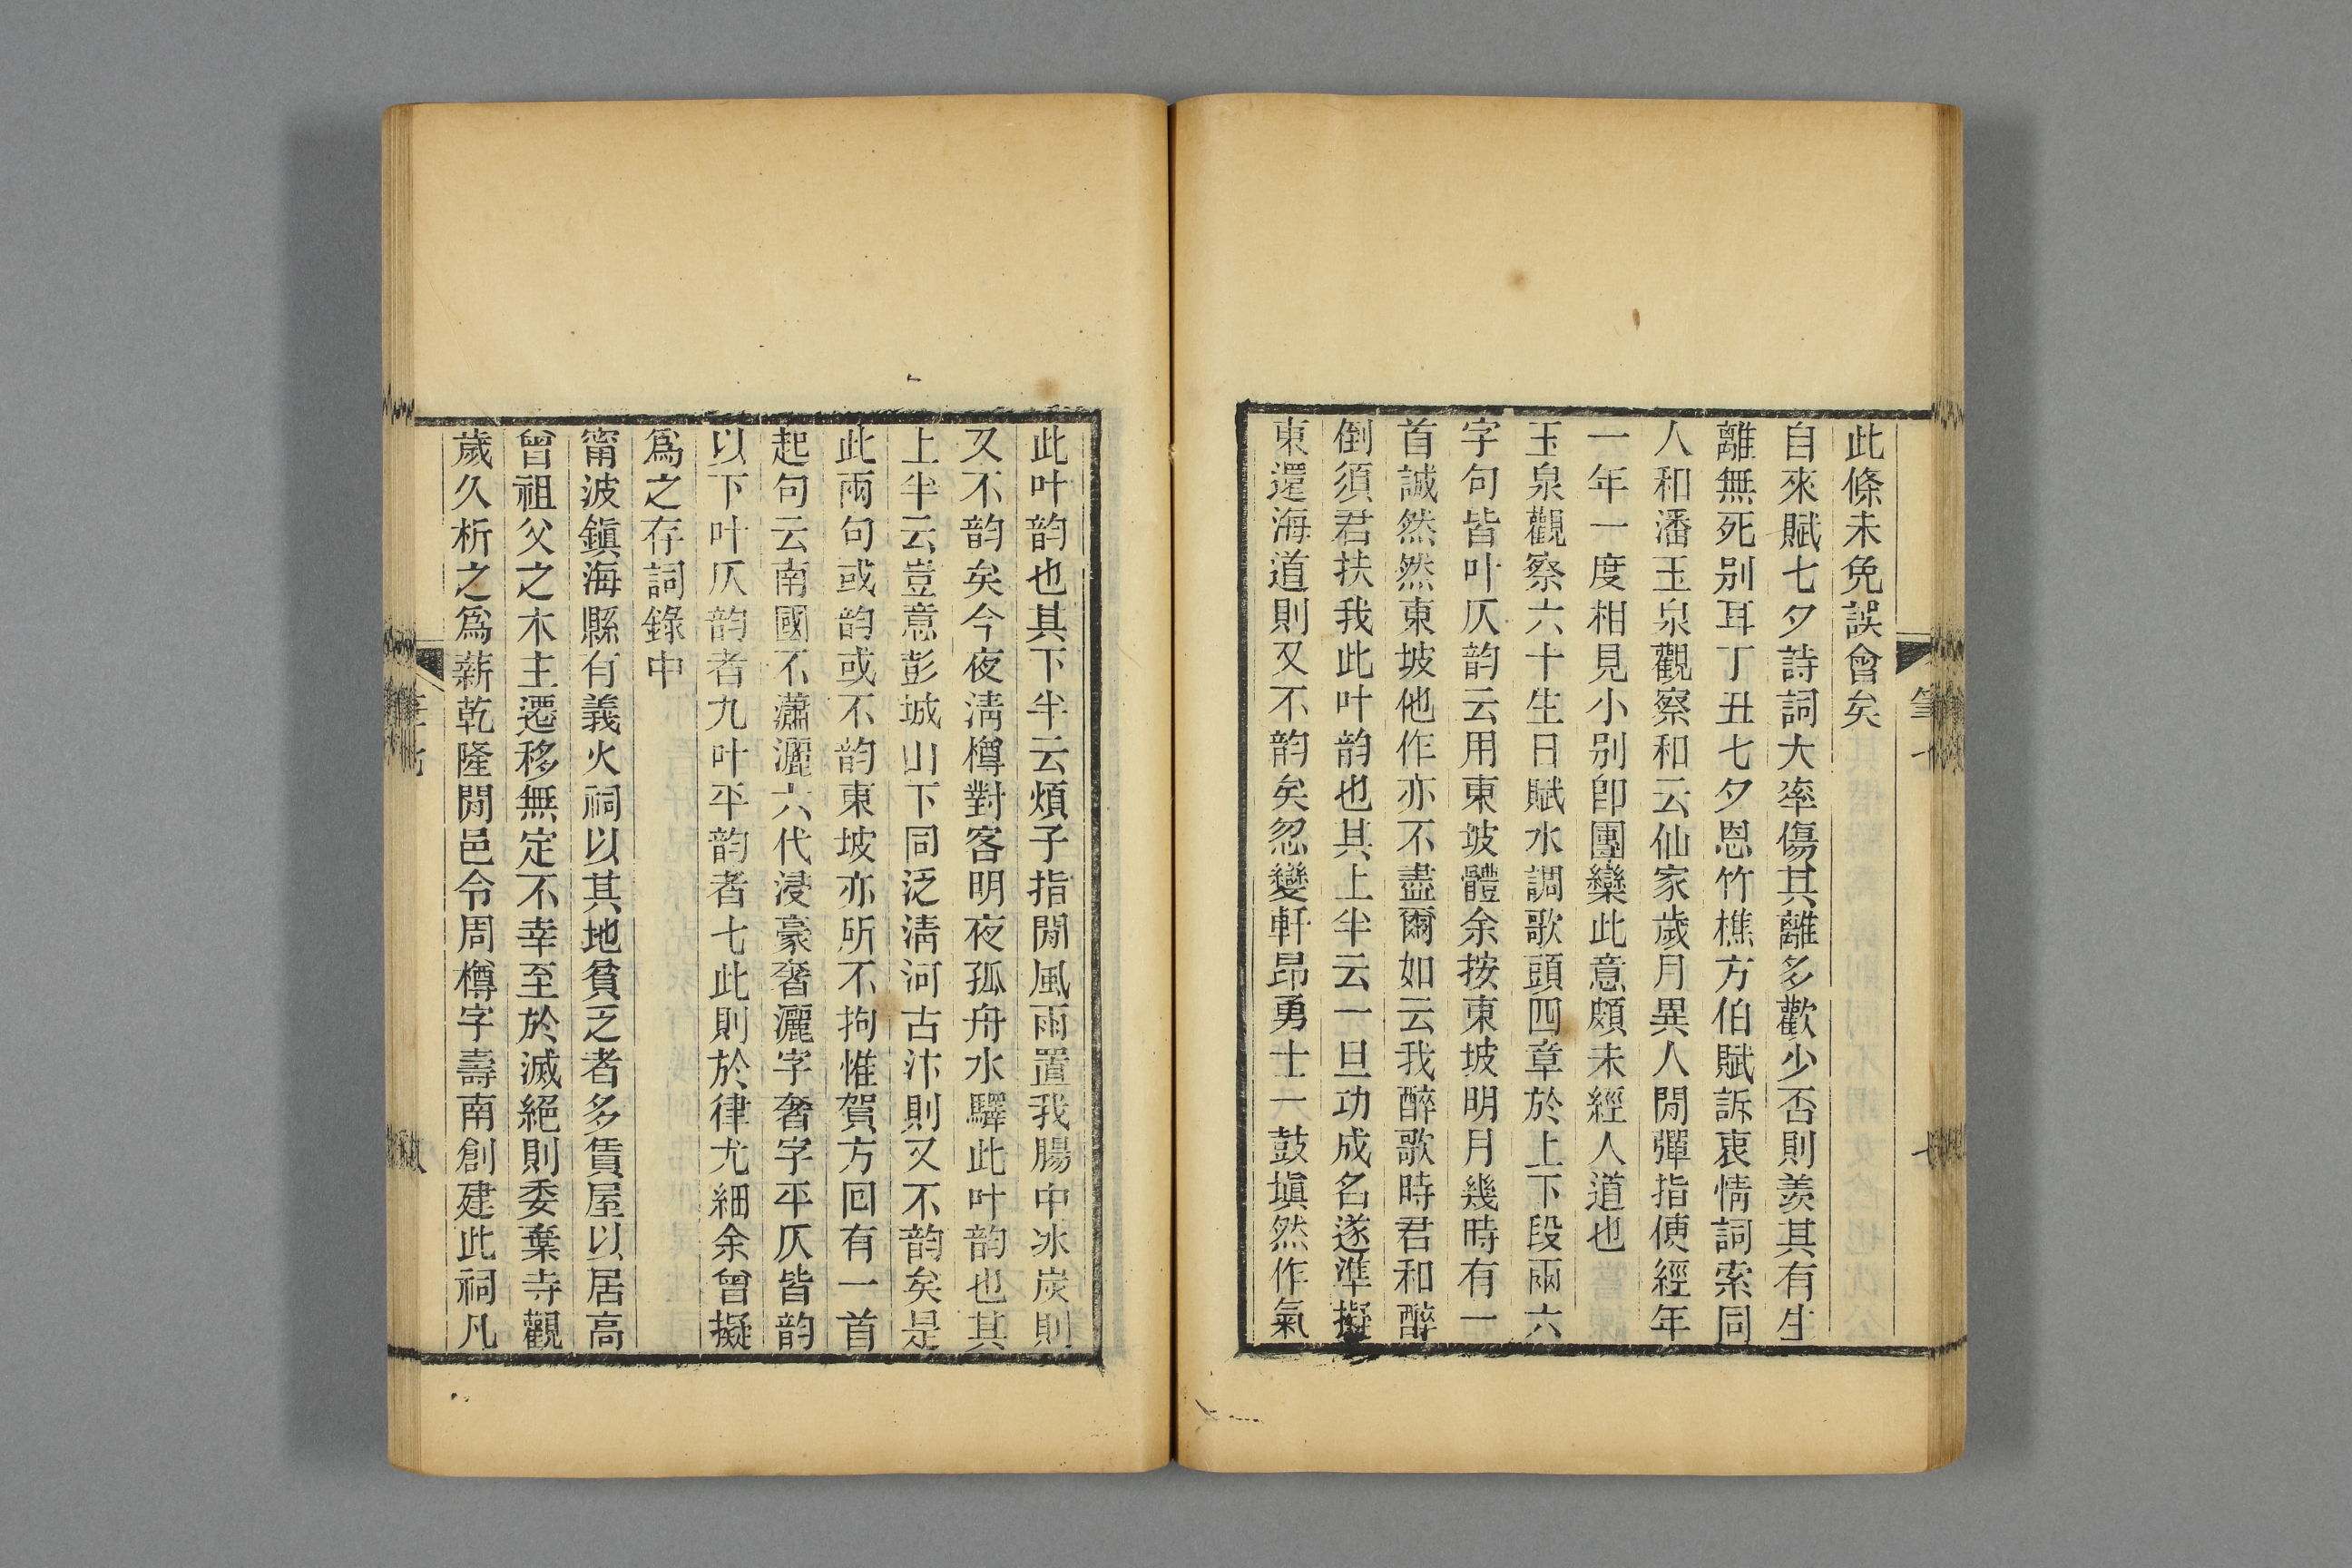 此條未免誤會矣
自來賦七夕詩詞大率傷其離多歡少否則羨其有生
離無死別耳丁丑七夕恩竹樵方伯賦訴衷情詞索同
人和潘玉泉觀察和云仙家歲月異人閒彈指便經年
一年一度相見小別卽團欒此意頗未經人道也
玉泉觀察六十生日賦水調歌頭四章於上下段兩六
字句皆叶仄韵云用東坡體余按東坡明月幾時有一
首誠然然東坡他作亦不盡爾如云我醉歌時君和醉
倒須君扶我此叶韵也其上半云一旦功成名遂準擬
東還海道則又不韵矣忽變軒昂勇士一鼓塡然作氣
此叶韵也其下半云煩子指閒風雨置我腸中冰炭則
又不韵矣今夜淸樽對客明夜孤舟水驛此叶韵也其
上半云豈意彭城山下同泛淸河古汴則又不韵矣是
此兩句或韵或不韵東坡亦所不拘惟賀方回有一首
起句云南國不瀟灑六代浸豪奢灑字奢字平仄皆韵
以下叶仄韵者九叶平韵者七此則於律尤細余曾擬
爲之存詞錄中
甯波鎭海縣有義火祠以其地貧乏者多賃屋以居高
曾祖父之木主遷移無定不幸至於滅絕則委棄寺觀
歲久析之爲薪乾隆閒邑令周樽字壽南創建此祠凡